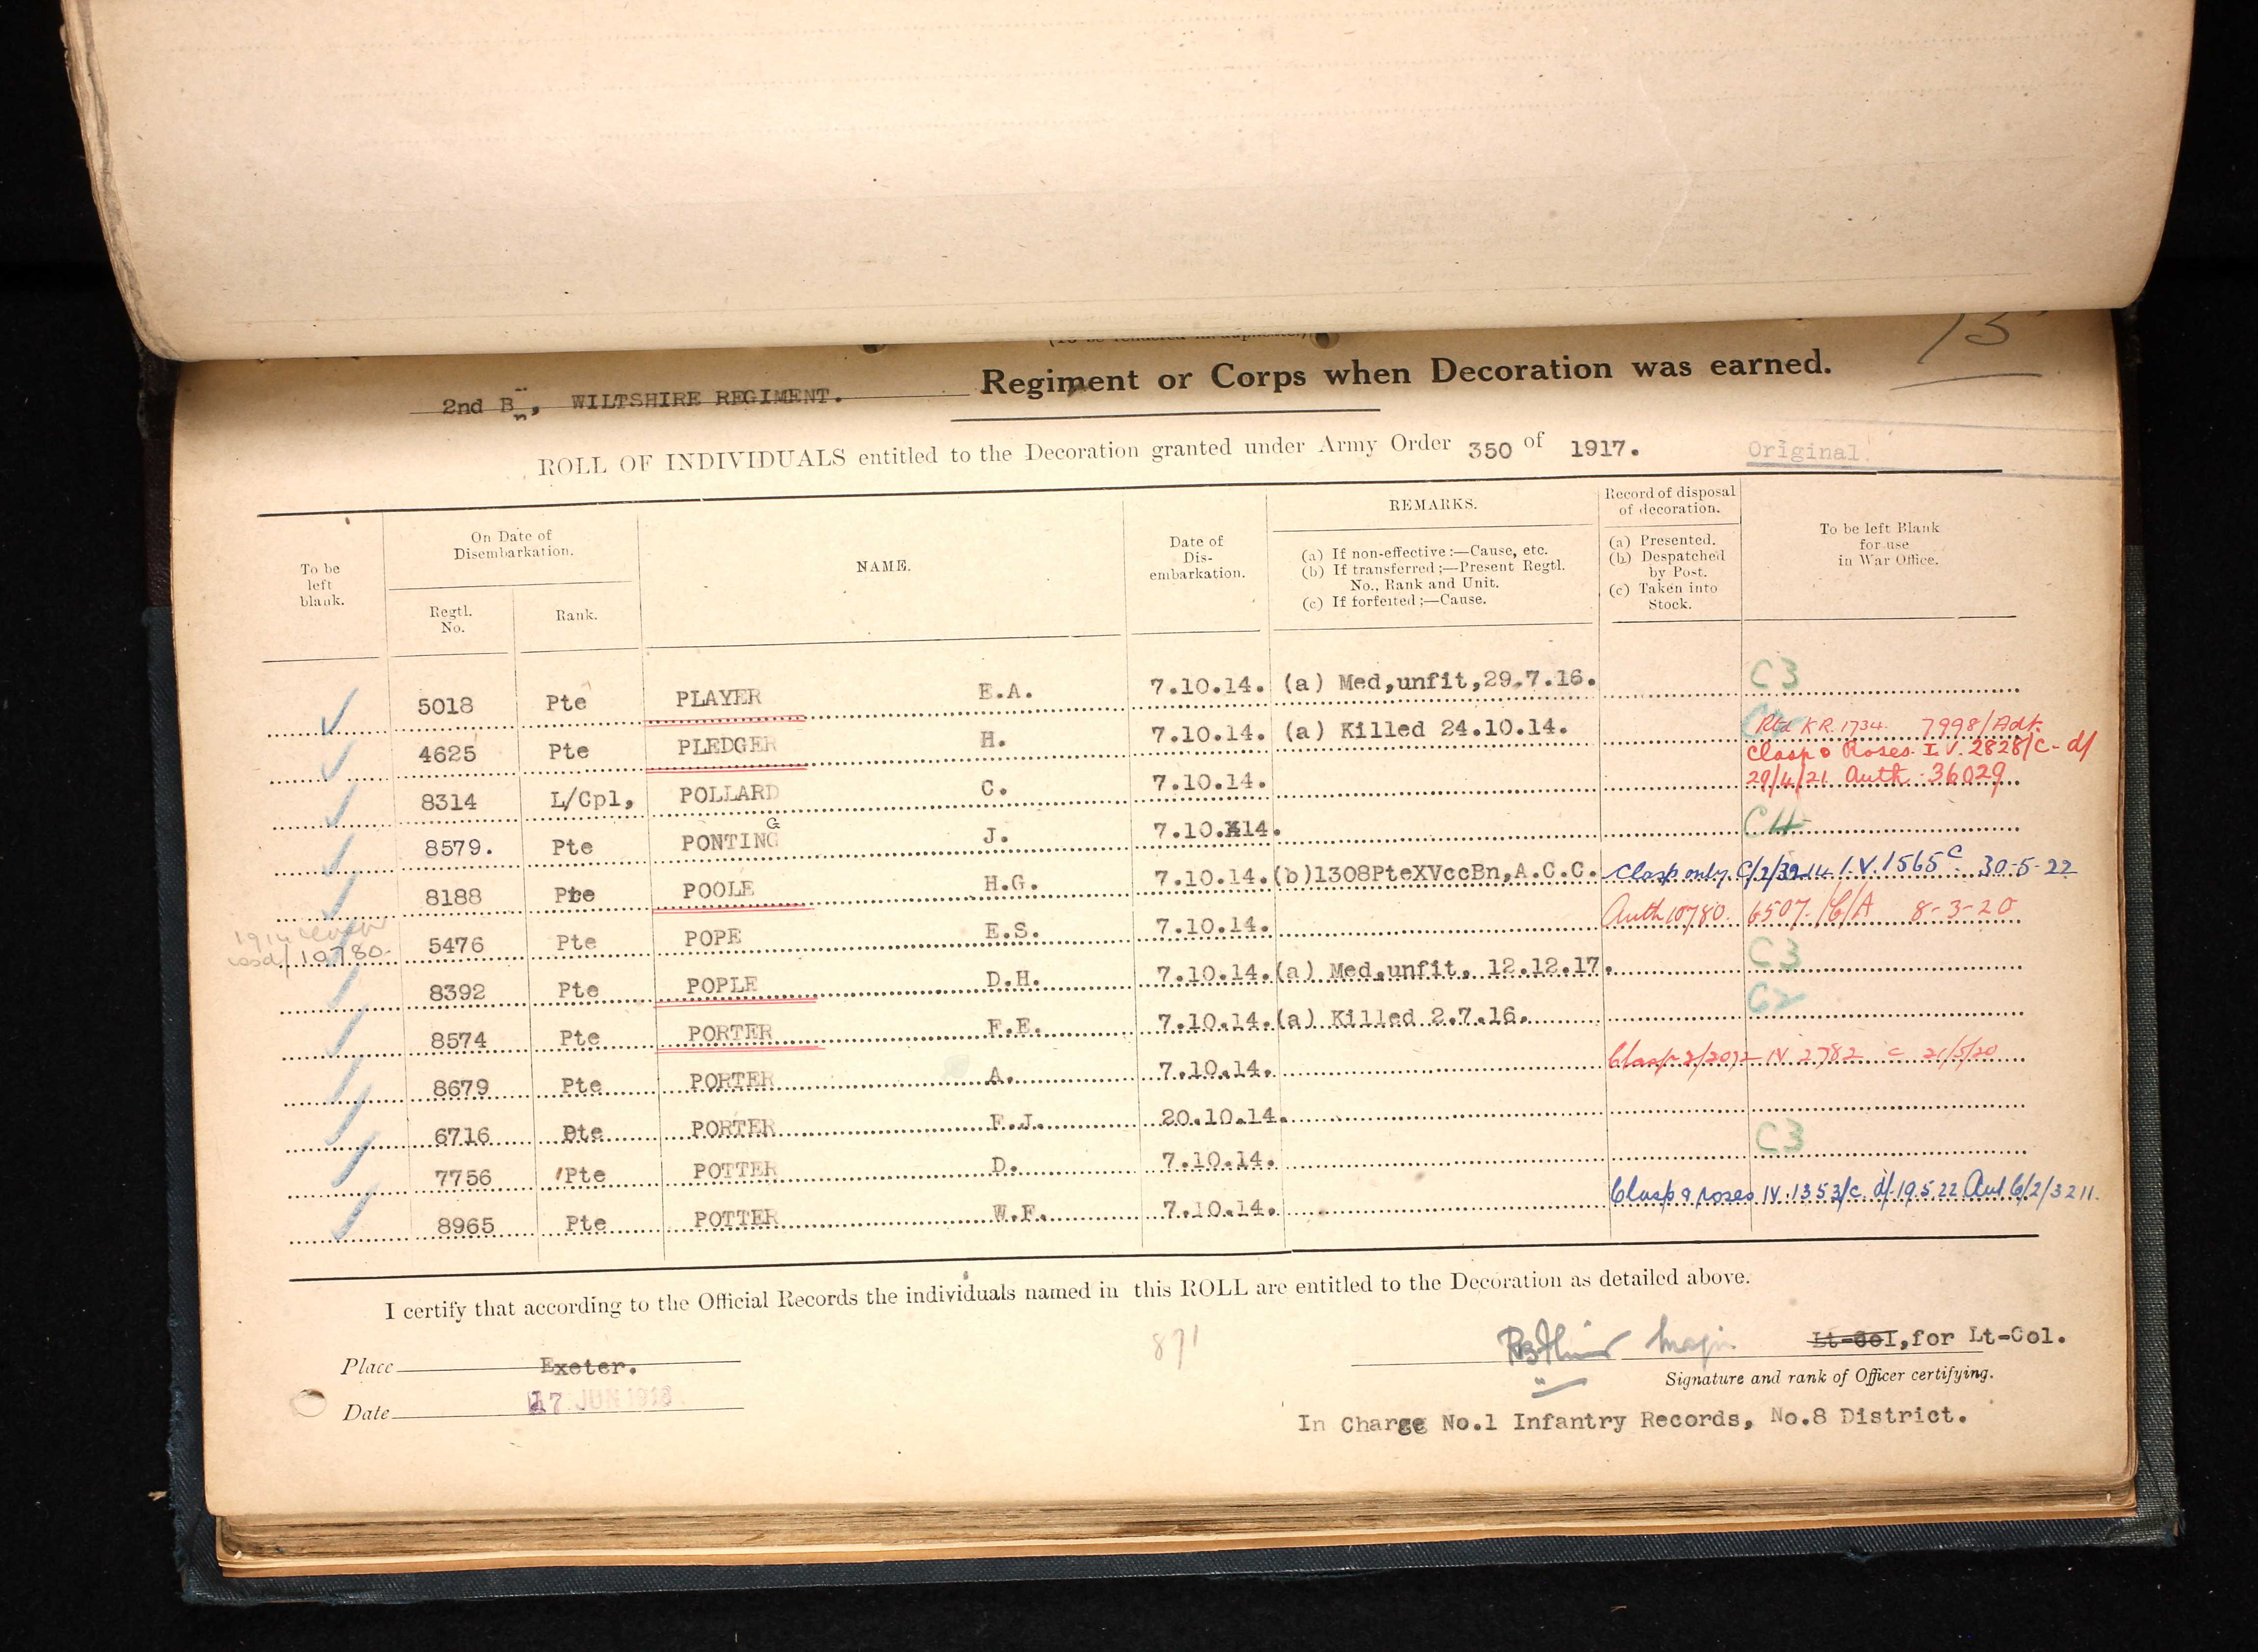 (To be rendered in duplicate)
15
2nd Bn, WILTSHIRE REGIMENT. Regiment or Corps when Decoration was earned.
ROLL OF INDIVIDUALS entitled to the Decoration granted under Army Order 350 of 1917. Original.
To be left blank.
On Date of Disembarkation.
Regtl. No.
Rank.
NAME.
Date of Dis-embarkation.
REMARKS.
(a) If non-effective:—Cause, etc.
(b) If transferred;—Present Regtl. No., Rank and Unit.
(c) If forfeited;—Cause.
Record of disposal of decoration.
(a) Presented.
(b) Despatched by Post.
(c) Taken into Stock.
To be left Blank for use in War Office.
5018 Pte PLAYER E.A. 7.10.14. (a) Med,unfit,29.7.16. C3
4625 Pte PLEDGER H. 7.10.14. (a) Killed 24.10.14. Rtd K.R. 1734. 7998/Adt.
Clasp & Roses I.V. 2828/c - d/
8314 L/Cpl, POLLARD C. 7.10.14. 29/4/21. Auth. 36029.
8579. Pte PONTING J. 7.10.14. C4
8188 Pte POOLE H.G. 7.10.14. (b)1308PteXVccBn,A.C.C. Clasp only. C/2/3214 I.V.1565c 30-5-22
10780
5476 Pte POPE E.S. 7.10.14. Auth 10780. 6507./C/A 8-3-20
8392 Pte POPLE D.H. 7.10.14. (a) Med,unfit, 12.12.17. C3
8574 Pte PORTER F.E. 7.10.14. (a) Killed 2.7.16. C2
8679 Pte PORTER A. 7.10.14. Clasp 2/2072 IV 2782 c 21/5/20
6716 Pte PORTER F.J. 20.10.14.
7756 Pte POTTER D. 7.10.14. C3
8965 Pte POTTER W.F. 7.10.14. Clasp & roses IV.1353/c. d/-19.5.22 Aut C/2/3211.
I certify that according to the Official Records the individuals named in this ROLL are entitled to the Decoration as detailed above.
871
Place Exeter.
Major Lt-Col,for Lt-Col.
Signature and rank of Officer certifying.
Date 17 JUN 1918
In Charge No.1 Infantry Records, No.8 District.